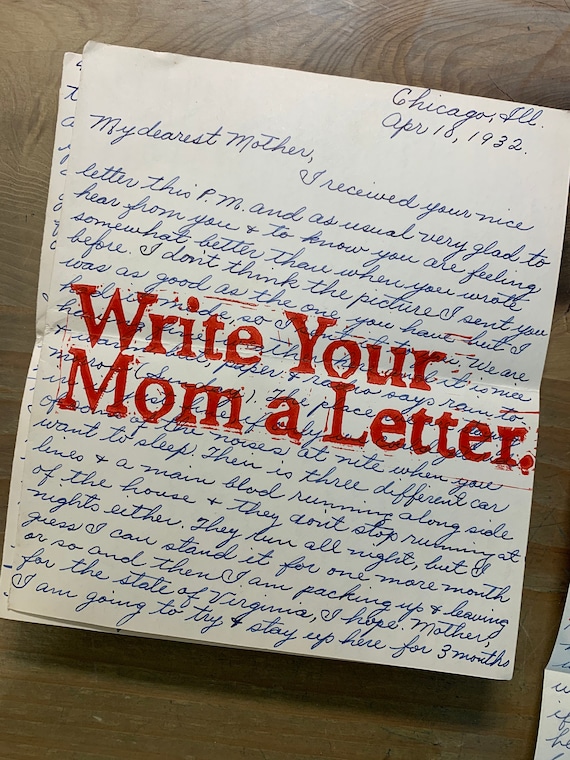 Chicago, Ill.
Apr 18, 1932.
My dearest Mother,
I received your nice
letter this P.M. and as usual very glad to
hear from you & to know you are feeling
somewhat better than when you wrote
before. I don't think the picture I sent you
was as good as the one you have but I
made so I We are
it is nice
paper & says rain to-
Write Your
Mom a Letter.
The place
of the noises at nite when you
want to sleep. Then is three different car
lines & a main blvd running along side
of the house & they don't stop running at
nights either. They run all night, but I
guess I can stand it for one more month
or so and then I am packing up & leaving
for the state of Virginia, I hope. Mother,
I am going to try & stay up here for 3 months